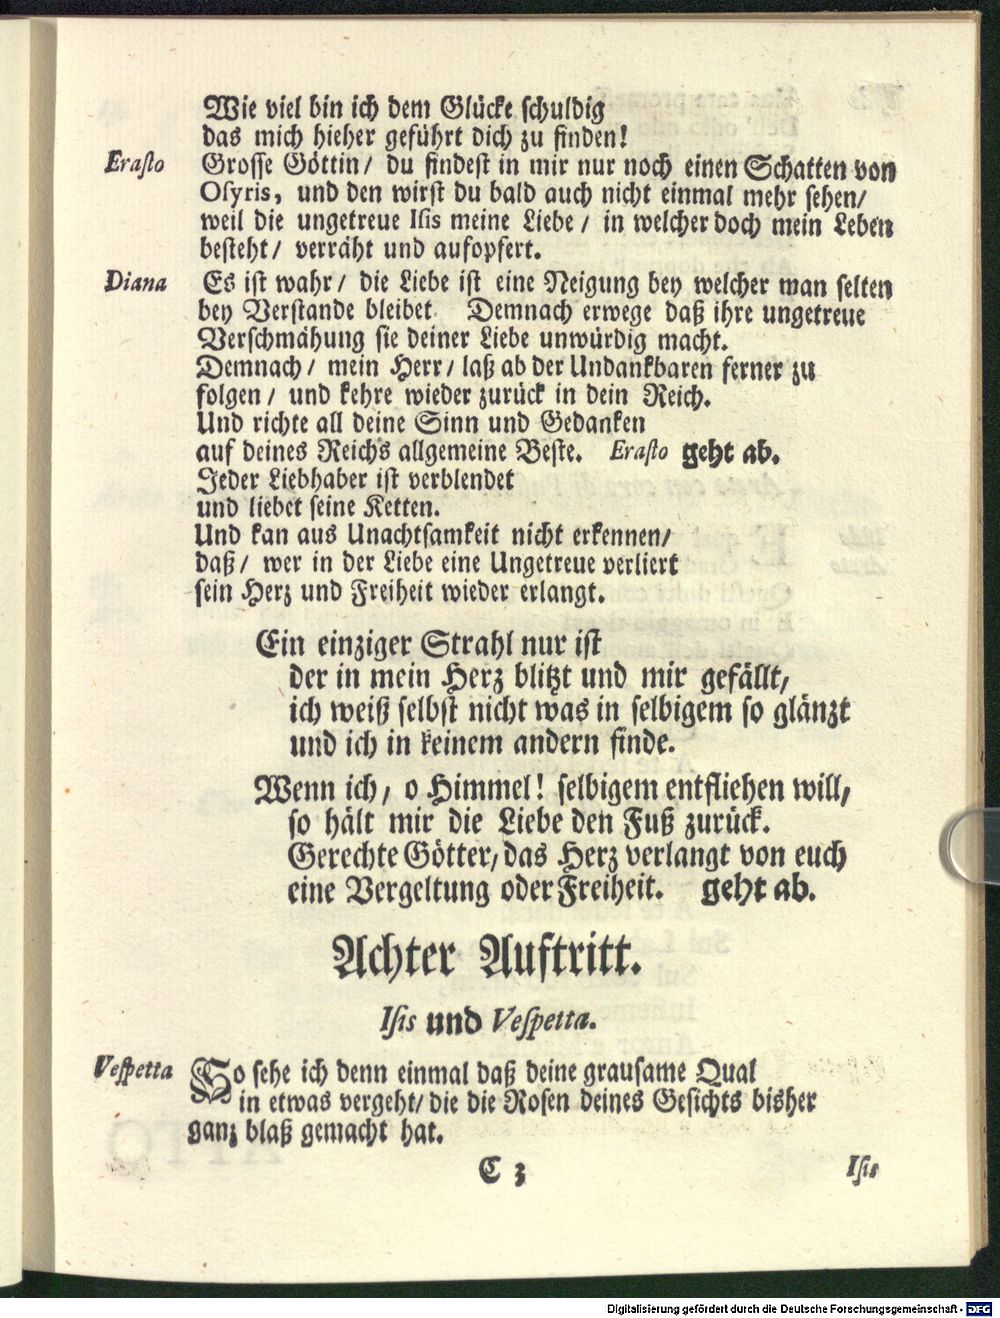 Wie viel bin ich dem Glücke schuldig
das mich hieher geführt dich zu finden!
Erasto Grosse Göttin/ du findest in mir nur noch einen Schatten von
Osyris, und den wirst du bald auch nicht einmal mehr sehen/
weil die ungetreue Isis meine Liebe/ in welcher doch mein Leben
besteht/ verräht und aufopfert.
Diana Es ist wahr/ die Liebe ist eine Neigung bey welcher man selten
bey Verstande bleibet. Demnach erwege daß ihre ungetreue
Verschmähung sie deiner Liebe unwürdig macht.
Demnach/ mein Herr/ laß ab der Undankbaren ferner zu
folgen/ und kehre wieder zurück in dein Reich.
Und richte all deine Sinn und Gedanken
auf deines Reichs allgemeine Beste. Erasto geht ab.
Jeder Liebhaber ist verblendet
und liebet seine Ketten.
Und kan aus Unachtsamkeit nicht erkennen/
daß/ wer in der Liebe eine Ungetreue verliert
sein Herz und Freiheit wieder erlangt.
Ein einziger Strahl nur ist
der in mein Herz blitzt und mir gefällt/
ich weiß selbst nicht was in selbigem so glänzt
und ich in keinem andern finde.
Wenn ich/ o Himmel! selbigem entfliehen will/
so hält mir die Liebe den Fuß zurück.
Gerechte Götter/ das Herz verlangt von euch
eine Vergeltung oder Freiheit. geht ab.
Achter Auftritt.
Isis und Vespetta.
Vespetta So sehe ich denn einmal daß deine grausame Qual
in etwas vergeht/ die die Rosen deines Gesichts bisher
ganz blaß gemacht hat.
C 3 Isis
Digitalisierung gefördert durch die Deutsche Forschungsgemeinschaft - DFG